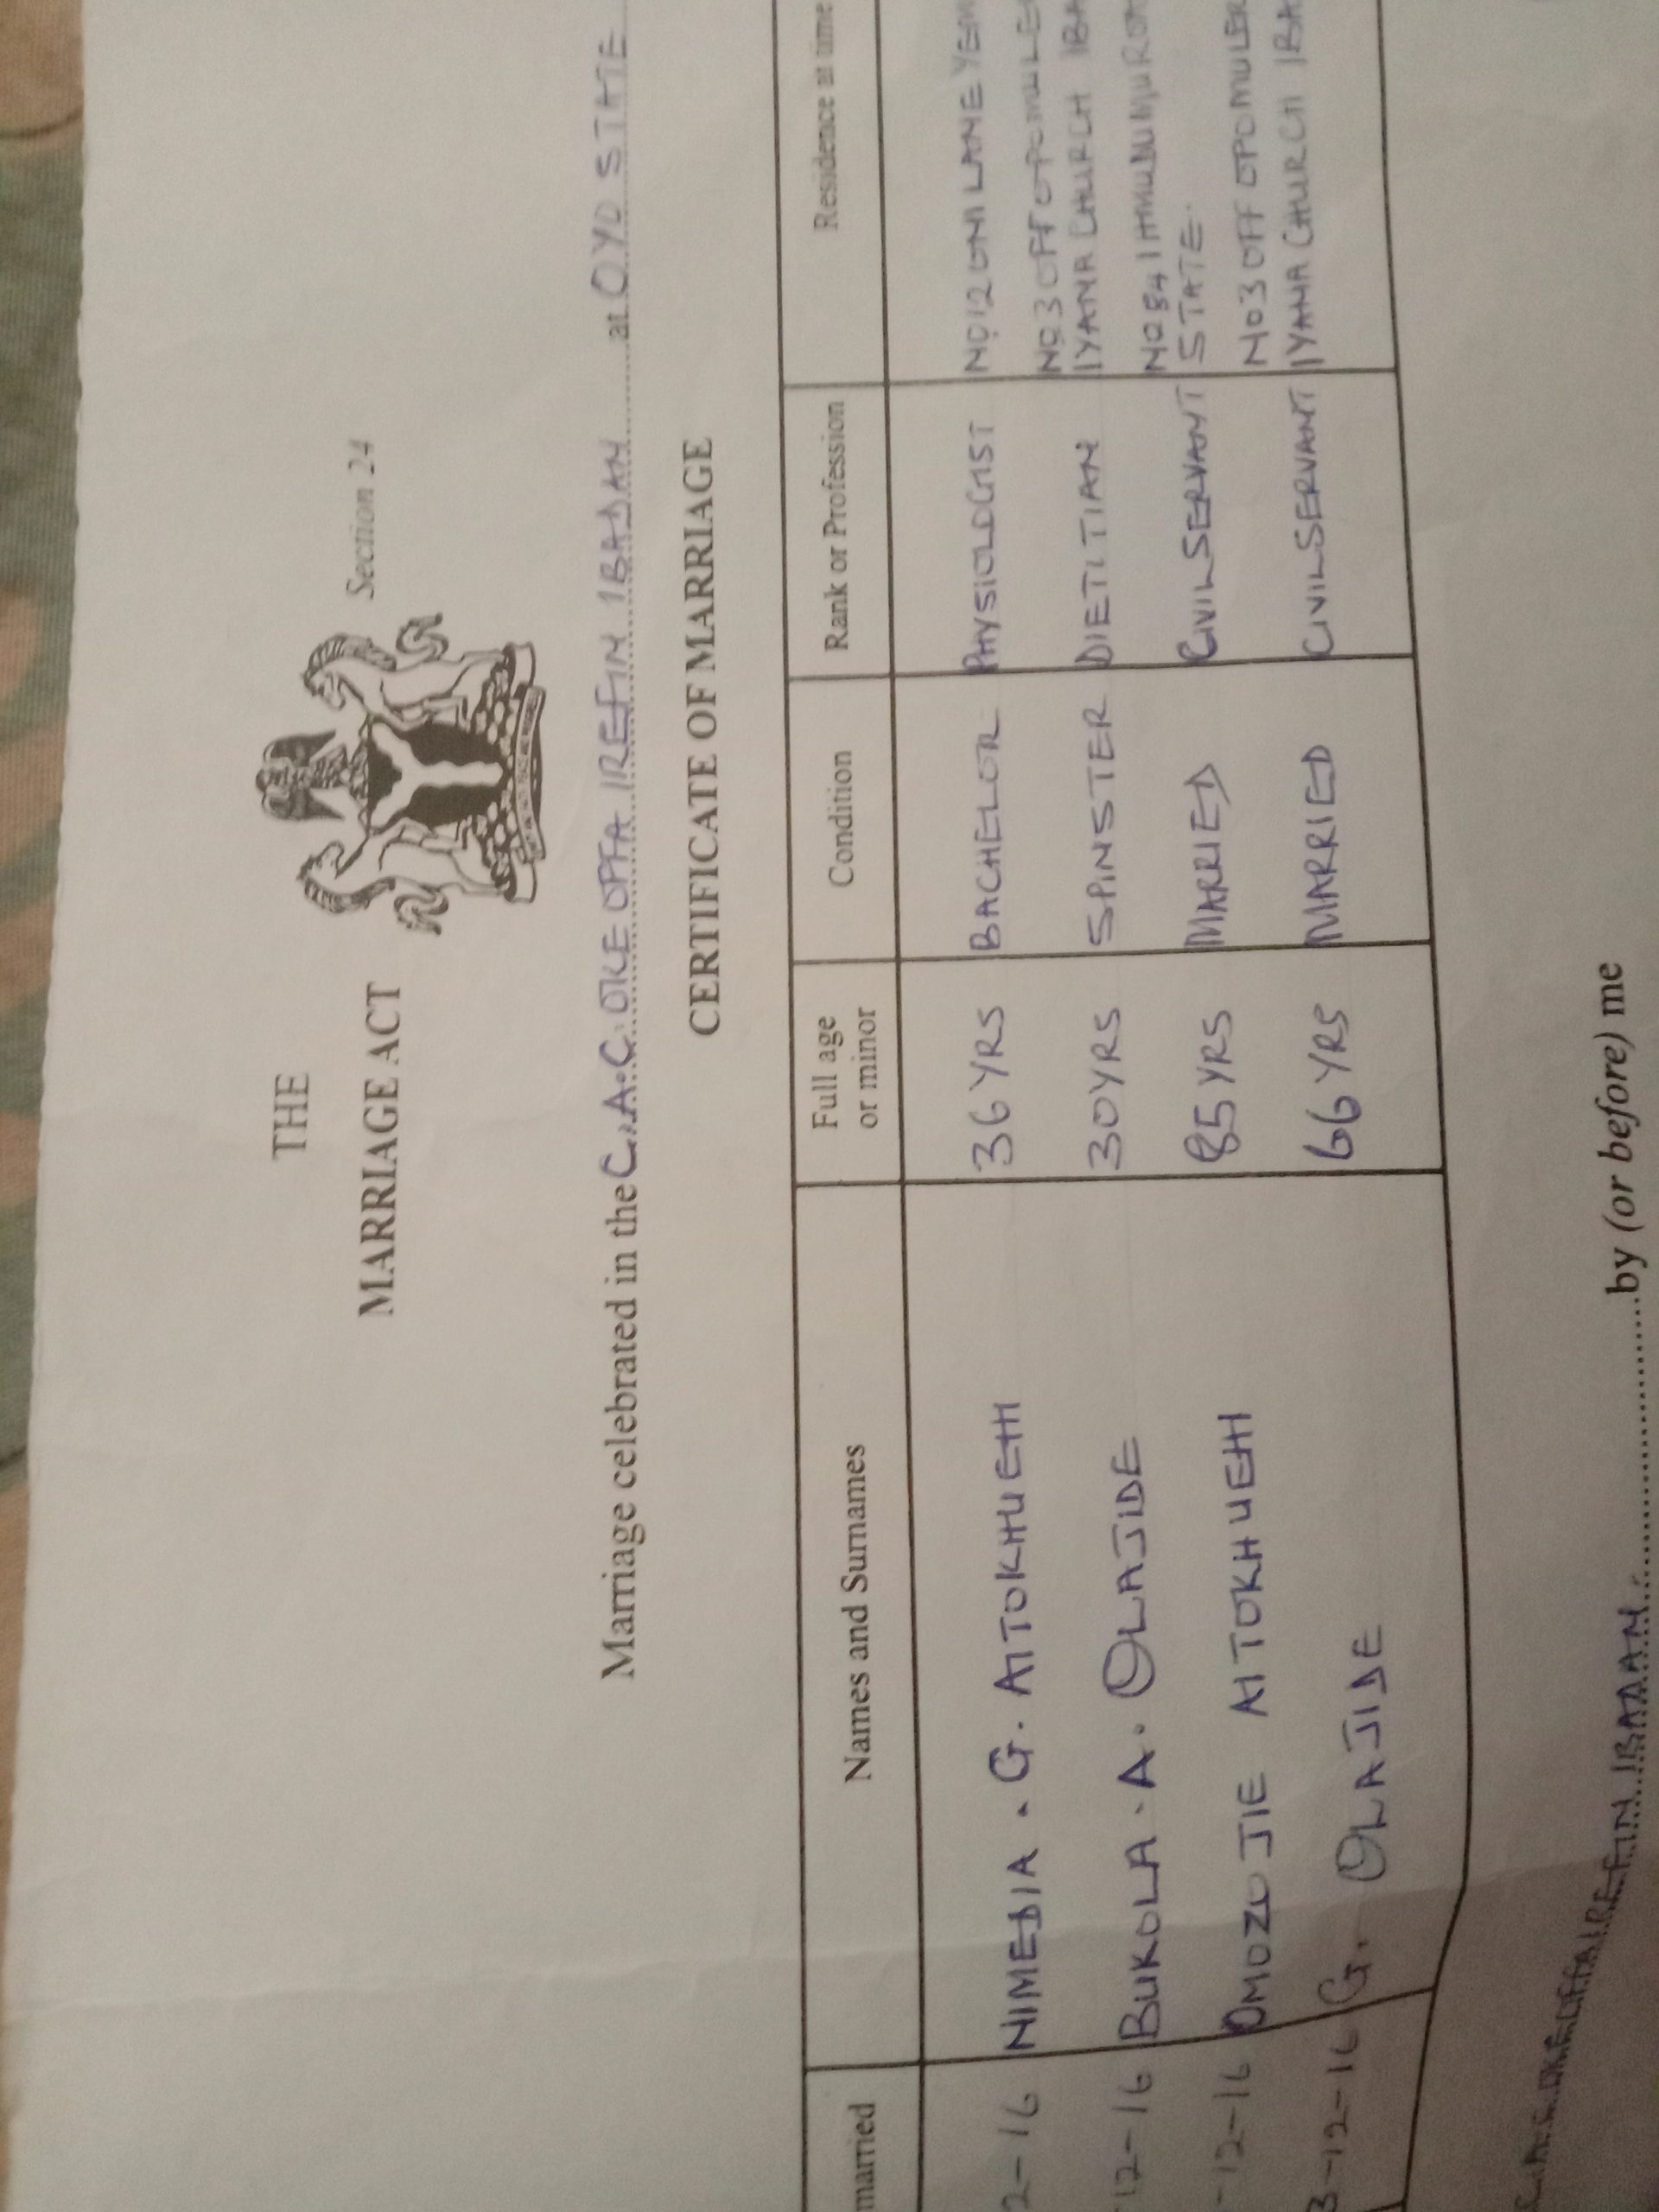 THE
MARRIAGE ACT
Section 24
Marriage celebrated in the C.A.C. OKE OFFA IREFIN IBADAN at OYO STATE
CERTIFICATE OF MARRIAGE
married Names and Surnames Full age or minor Condition Rank or Profession Residence at time
2-16 NIMEDIA . G. AITOKHUEHI 36 YRS BACHELOR PHYSIOLOGIST NO 12 ONI LANE
12-16 BUKOLA . A. OLAJIDE 30 YRS SPINSTER DIETITIAN NO 3 OFF
IYANA CHURCH IBA
-12-16 OMOZOJIE AITOKHUEHI 85 YRS MARRIED CIVIL SERVANT
STATE.
3-12-16 G. OLAJIDE 66 YRS MARRIED CIVIL SERVANT NO 3 OFF OPOMULER
IYANA CHURCH IBA
C.A.C OKE OFFA IREFIN IBADAN. by (or before) me